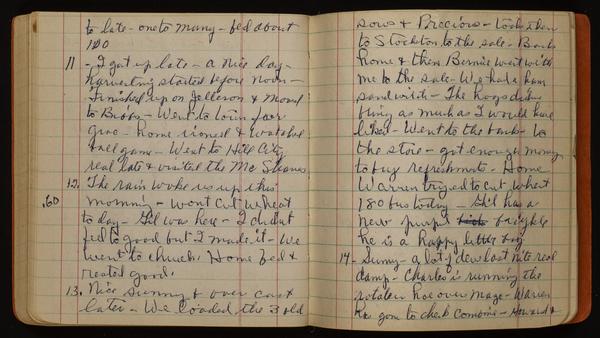 to late - one to many - bed about
100
11 - I got up late - a nice day -
harvesting started before noon -
Finished up on Jelleson & Moved
to Boggs - Went to town for
groc - home ironed & watched
ball game - Went to Hill City
real late & visited the Mc Shanes
12. The rain woke us up this
.60 morning - wont cut wheat
to day - Gil was here - I didnt
feel to good but I made it - We
went to church. Home fed &
rested good.
13. Nice sunny & over cast
later - We loaded the 3 old
sows & Precious - took them
to Stockton to the sale - Back
home & then Bernie went with
me to the sale - We had a ham
sandwich - The hogs didnt
bring as much as I would have
liked - Went to the bank - to
the store - got enough money
to buy refreshments - Home
Warren tryed to cut wheat
180 bu today - Gil has a
new pup
he is a happy little dog
14 - Sunny - a lot of dew last nite real
damp - Charles is running the
rotatein hoe over maze - Warren
has gone to check combine - Howard &